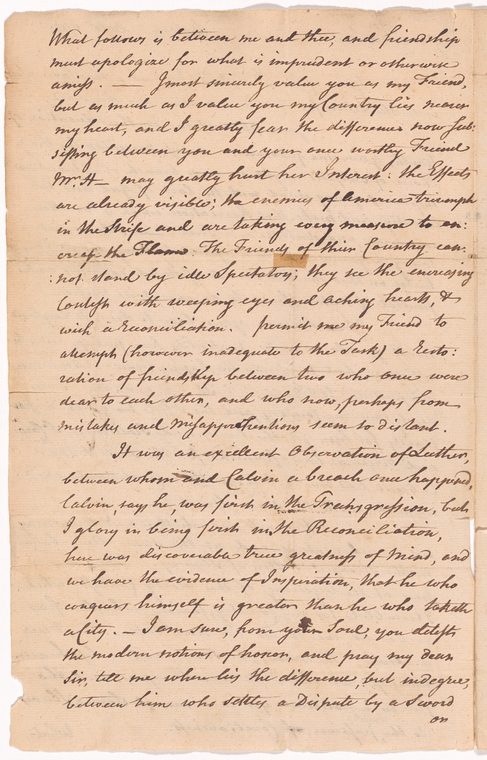 What follows is between me and thee, and friendship
must apologize for what is imprudent or otherwise
amiss. — I most sincerely value you as my Friend,
but as much as I value you my Country lies nearer
my heart, and I greatly fear the differences now sub:
:sisting between you and your once worthy Friend
Mr. H— may greatly hurt her Interest: the Effects
are already visible; the enemies of America triumph
in the Strife and are taking every measure to en:
crease the Flame. The Friends of their Country can:
:not stand by idle Spectators; they see the encreasing
Contest with weeping eyes and aching hearts, &
wish a Reconciliation. permit me my Friend to
attempt (however inadequate to the Task) a Resto:
ration of friendship between two who once were
dear to each other, and who now, perhaps from
mistakes and Misapprehentions seem so distant.
It was an excellent Observation of Luther,
between whom and Calvin a breach once happened,
Calvin says he, was first in the Transgression, but
I glory in being first in the Reconciliation,
here was discoverable true greatness of Mind, and
we have the evidence of Inspiration, that he who
conquers himself is greater than he who taketh
a City. — I am sure, from your Soul, you detest
the modern notions of honor, and pray my dear
Sir, tell me where lies the difference, but in degree,
between him who settles a Dispute by a Sword
or